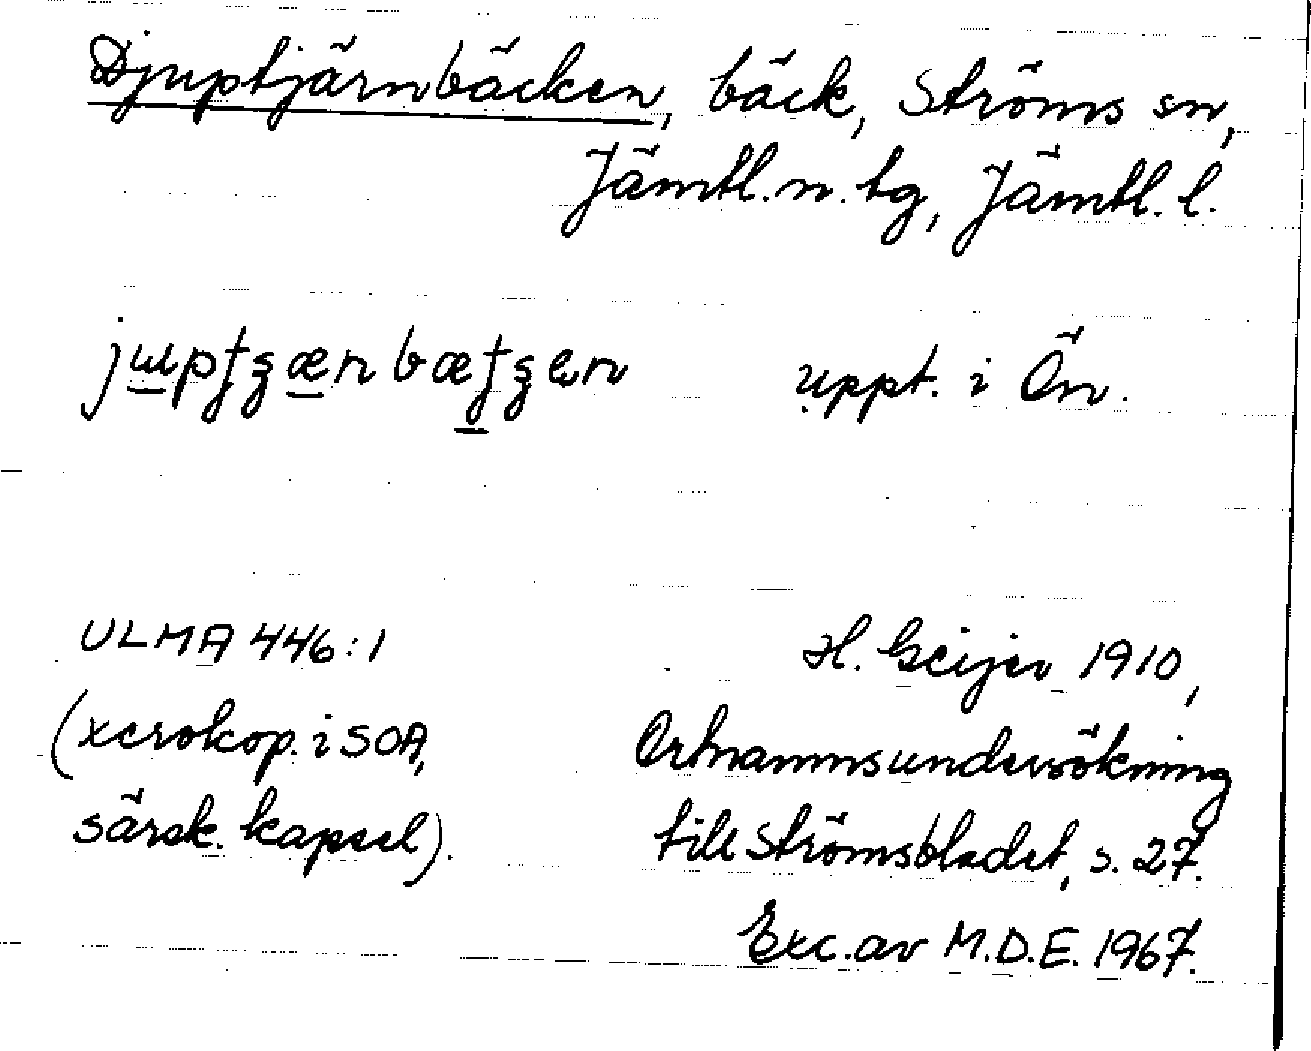 Djuptjärnbäcken, bäck, Ströms sn,
Jämtl. n. tg, Jämtl. l.
uppt. i Ön.
ULMA 446:1
(xerokop. i SOA,
särsk. kapsel).
H. Geijer 1910,
Ortnamnsundersökning
till Strömsbladet, s. 27.
Exc. av M.D.E. 1967.